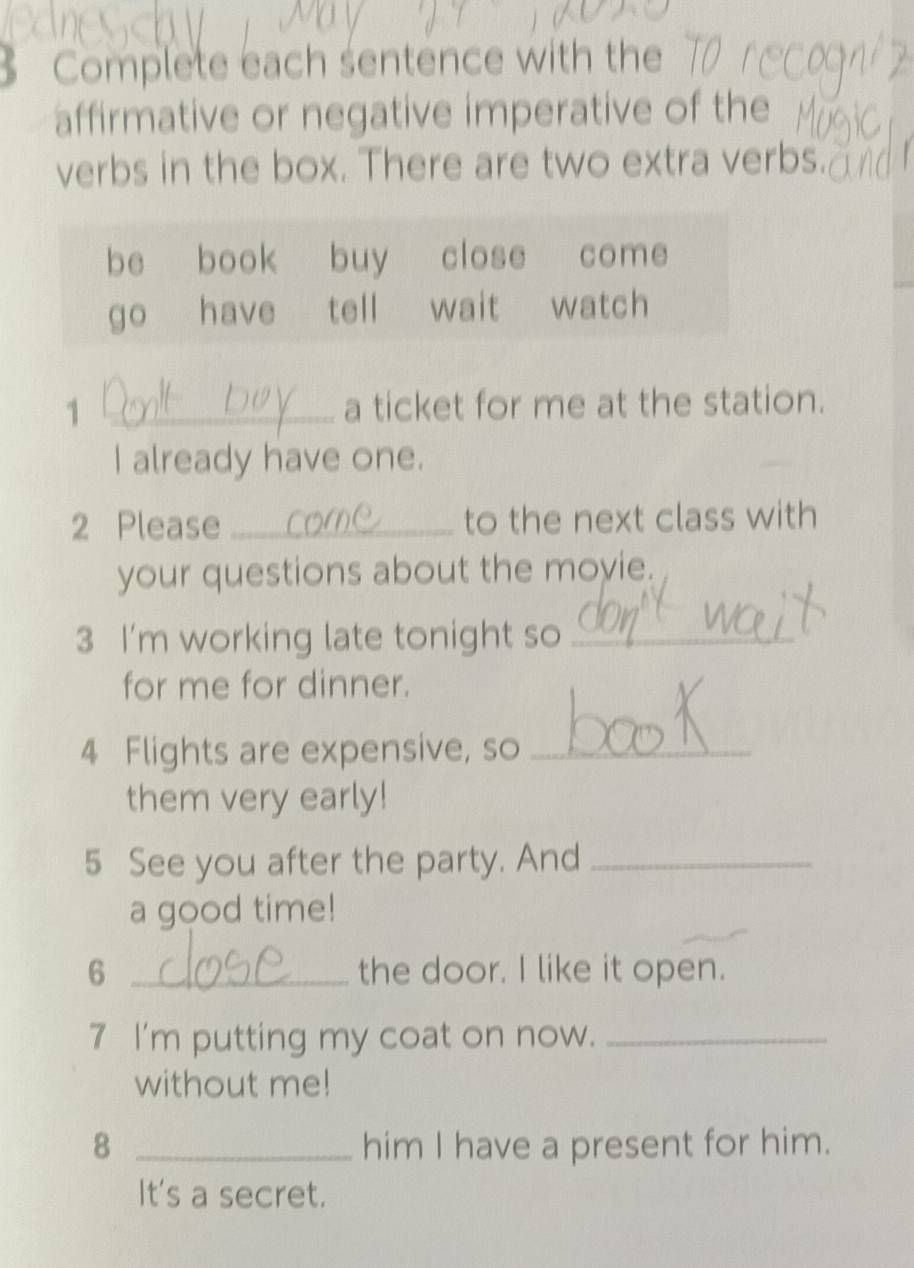 Wednesday, May 29, 2020
3 Complete each sentence with the To recogniz
affirmative or negative imperative of the Mugic
verbs in the box. There are two extra verbs. and
be book buy close come
go have tell wait watch
1 Don't boy a ticket for me at the station.
I already have one.
2 Please come to the next class with
your questions about the movie.
3 I'm working late tonight so don't wait
for me for dinner.
4 Flights are expensive, so book
them very early!
5 See you after the party. And
a good time!
6 close the door. I like it open.
7 I'm putting my coat on now.
without me!
8 him I have a present for him.
It's a secret.